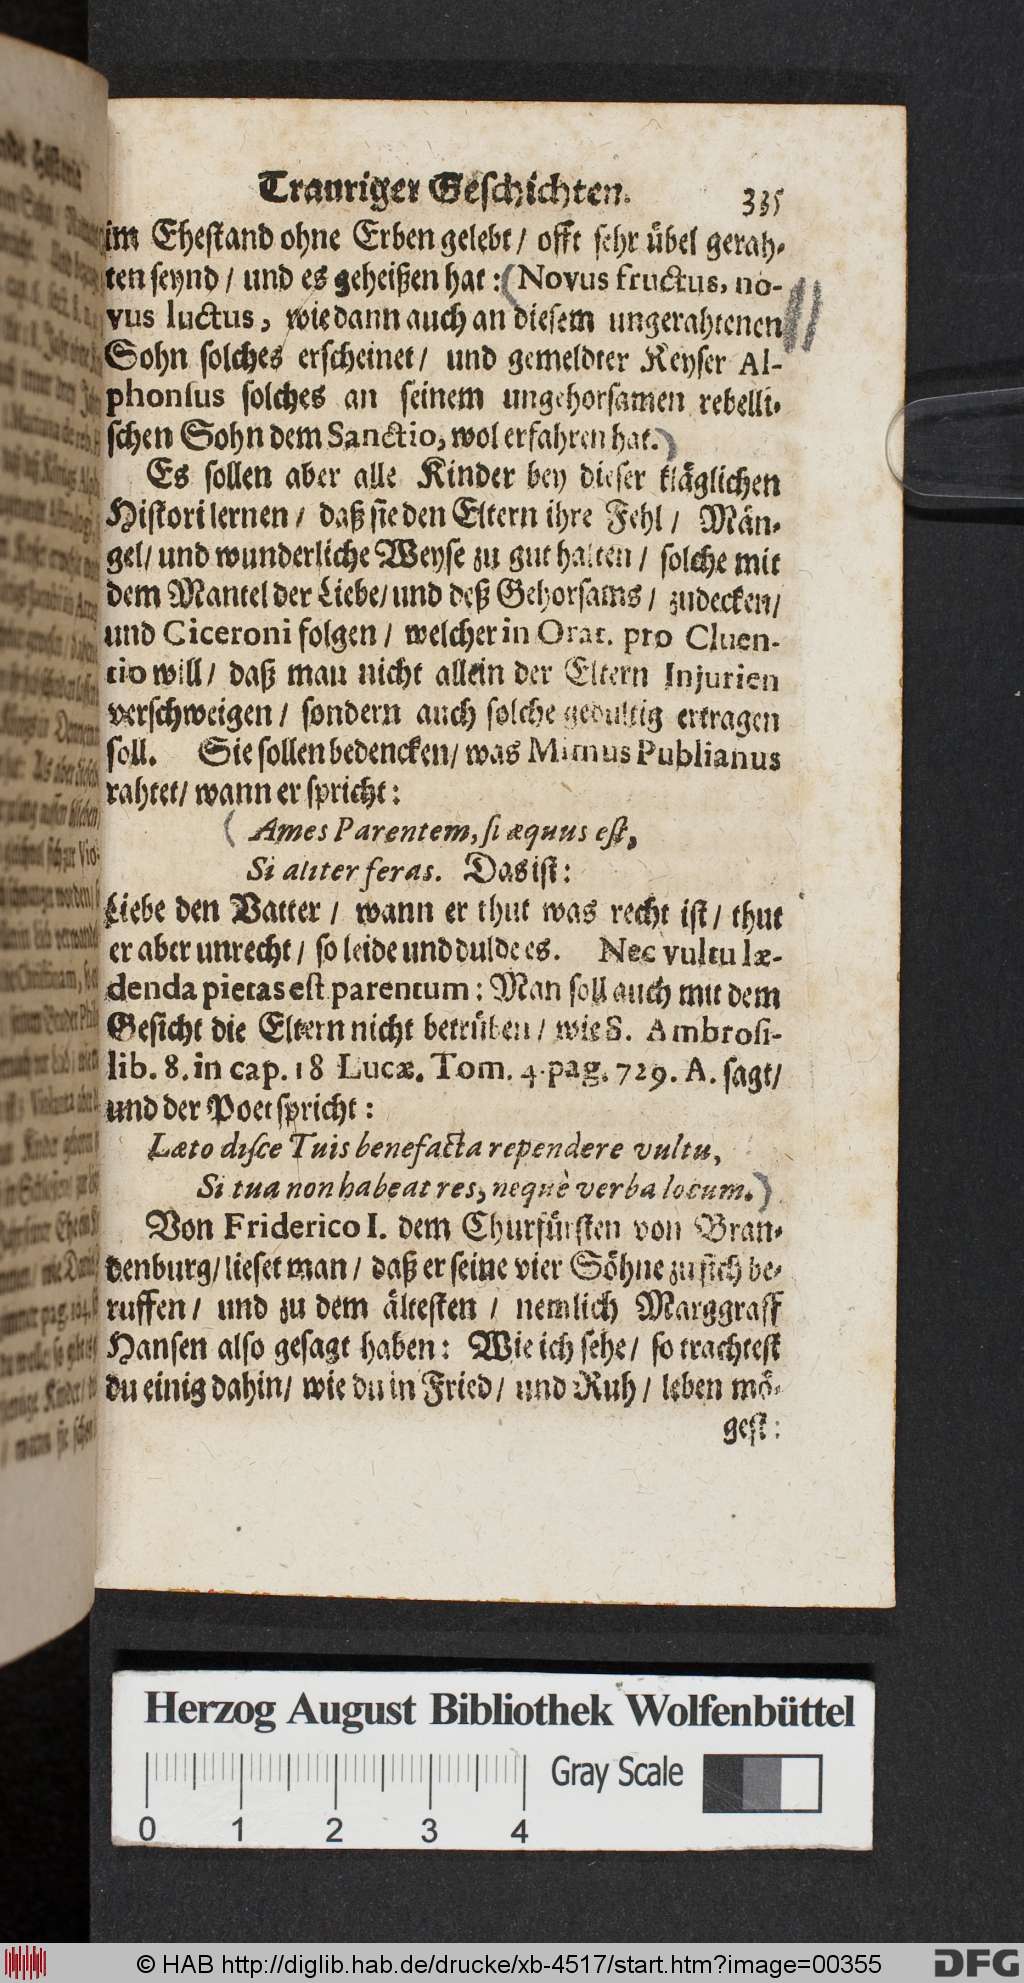 Trauriger Geschichten.
335
im Ehestand ohne Erben gelebt / offt sehr übel gerah-
ten seynd / und es geheißen hat: (Novus fructus, no-
vus luctus, wie dann auch an diesem ungerahtenen
Sohn solches erscheinet / und gemeldter Keyser Al-
phonsus solches an seinem ungehorsamen rebelli-
schen Sohn dem Sanctio, wol erfahren hat.)
Es sollen aber alle Kinder bey dieser kläglichen
Histori lernen / daß sie den Eltern ihre Fehl / Män-
gel / und wunderliche Weyse zu gut halten / solche mit
dem Mantel der Liebe / und deß Gehorsams / zudecken /
und Ciceroni folgen / welcher in Orat. pro Cluen-
tio will / daß man nicht allein der Eltern Injurien
verschweigen / sondern auch solche gedultig ertragen
soll. Sie sollen bedencken / was Mimus Publianus
rahtet / wann er spricht:
(Ames Parentem, si æquus est,
Si aliter feras. Das ist:
Liebe den Vatter / wann er thut was recht ist / thut
er aber unrecht / so leide und dulde es. Nec vultu læ-
denda pietas est parentum: Man soll auch mit dem
Gesicht die Eltern nicht betrüben / wie S. Ambrosi-
lib. 8. in cap. 18 Lucæ. Tom. 4. pag. 729. A. sagt /
und der Poet spricht:
Læto disce Tuis benefacta rependere vultu,
Si tua non habeat res, neque verba locum.)
Von Friderico I. dem Churfürsten von Bran-
denburg / lieset man / daß er seine vier Söhne zu sich be-
ruffen / und zu dem ältesten / nemlich Marggraff
Hansen also gesagt haben: Wie ich sehe / so trachtest
du einig dahin / wie du in Fried / und Ruh / leben mö-
gest:
Herzog August Bibliothek Wolfenbüttel
Gray Scale
0 1 2 3 4
© HAB http://diglib.hab.de/drucke/xb-4517/start.htm?image=00355
DFG